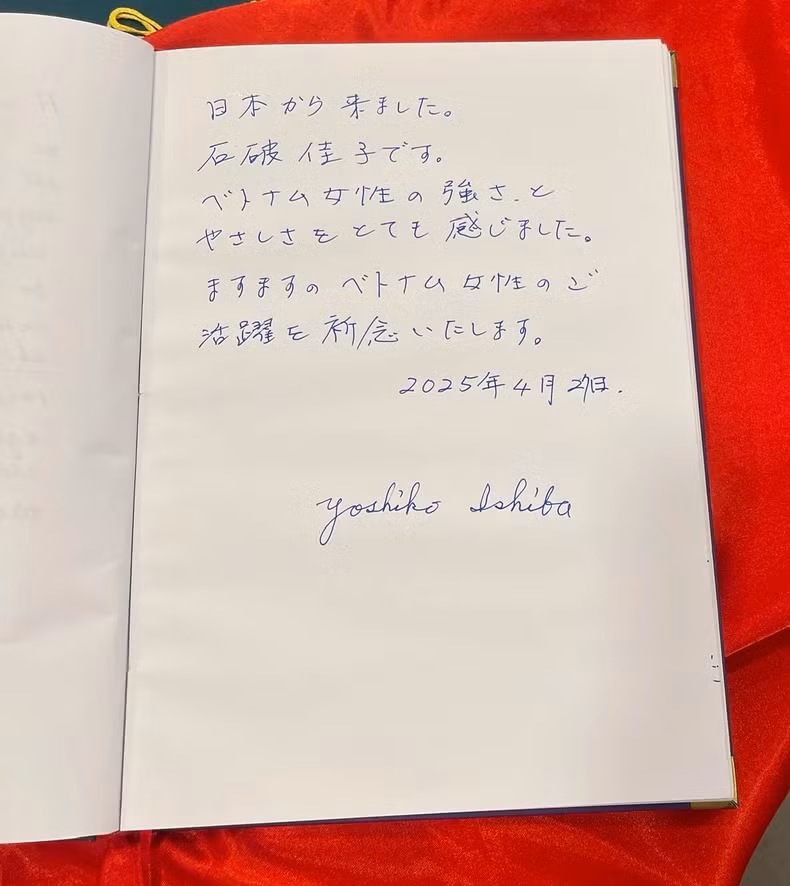 日本から来ました。
石破佳子です。
ベトナム女性の強さと
やさしさをとても感じました。
ますますのベトナム女性のご
活躍を祈念いたします。
2025年4月27日.
Yoshiko Ishiba